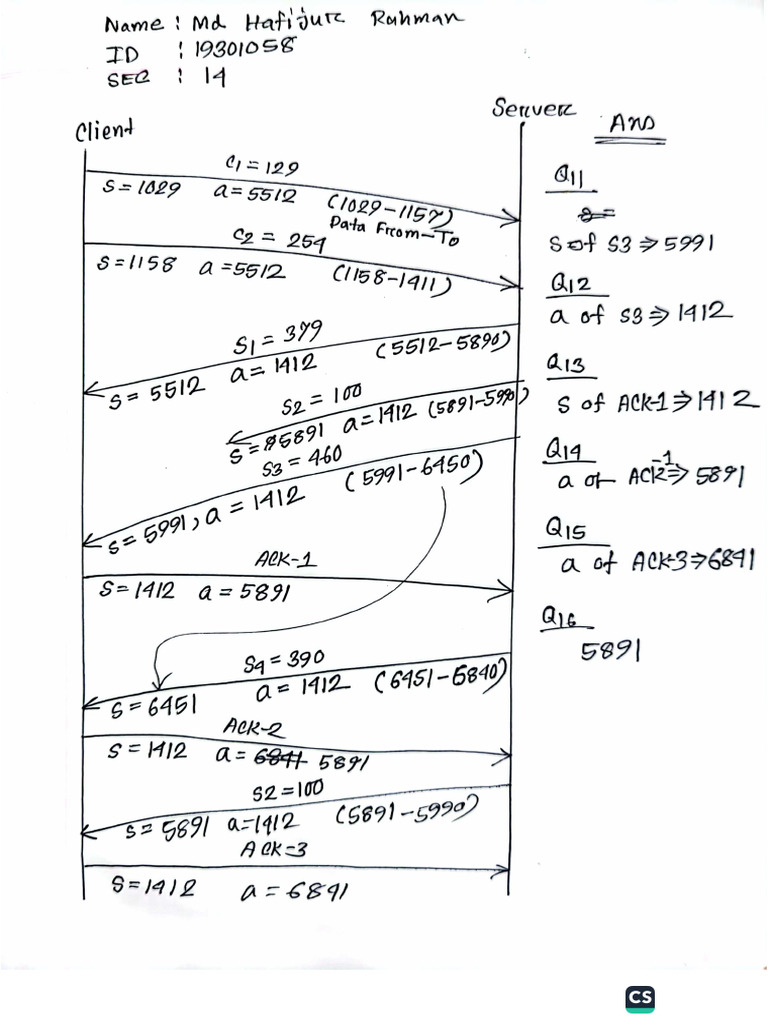 Name : Md Hafijur Rahman
ID : 19301058
SEC : 14
Client
Server
Ans
C1 = 129
S = 1029 a = 5512 (1029-1157)
Data From-To
C2 = 254
S = 1158 a = 5512 (1158-1411)
S1 = 379
S = 5512 a = 1412 (5512-5890)
S2 = 100
S = 5891 a = 1412 (5891-5990)
S3 = 460
S = 5991, a = 1412 (5991-6450)
ACK-1
S = 1412 a = 5891
S4 = 390
S = 6451 a = 1412 (6451-6840)
ACK-2
S = 1412 a = 6841 5891
S2 = 100
S = 5891 a = 1412 (5891-5990)
ACK-3
S = 1412 a = 6841
Q11
s=
S of S3 ⇒ 5991
Q12
a of S3 ⇒ 1412
Q13
S of ACK-1 ⇒ 1412
Q14
a of ACK-1 ⇒ 5891
Q15
a of ACK-3 ⇒ 6841
Q16
5891
CS